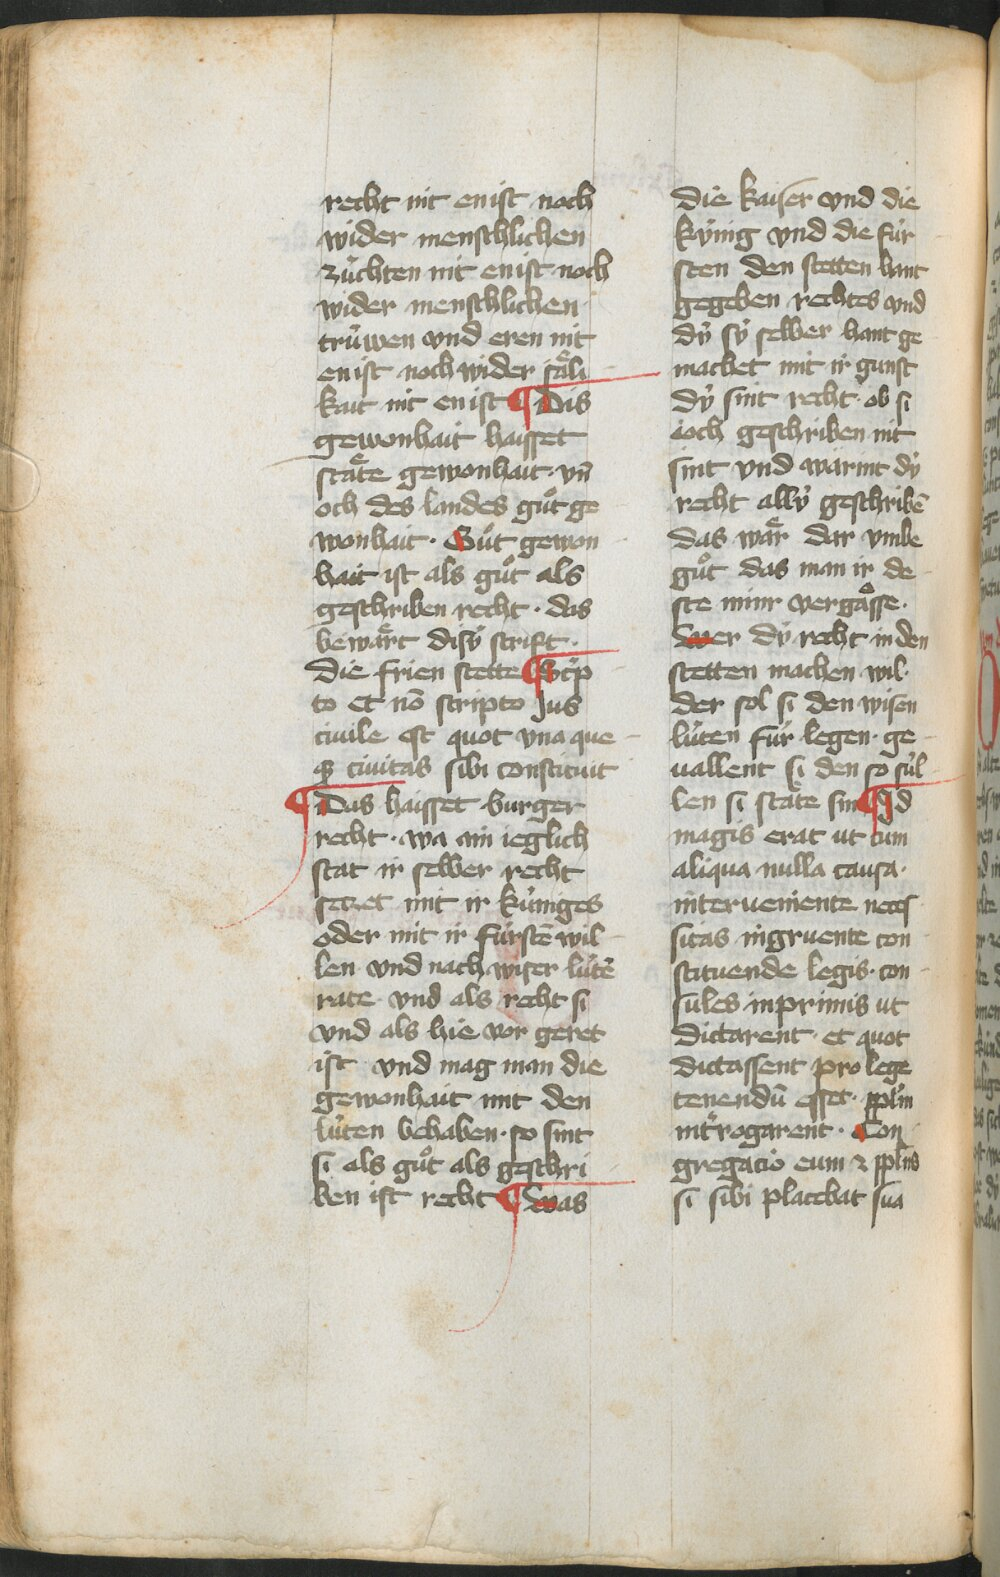 recht nit en ist noch
wider menschlichen
zůchten nit en ist noch
wider menschlichen
trůwen vnd eren nit
en ist noch wider såli
kait nit en ist ¶ Dis
gewonhait haisset
ståte gewonhait · vn̄
och des landes gůt ge
wonhait · Gůt gewon
hait ist als gůt als
geschriben recht · das
bewårt disÿ scrift ·
die frien stette ¶ Sc͛p
to et nō scripto Jus
ciuile est quot vna que
qꝫ ciuitas sibi constituit
¶ Das haisset burger
recht · wa ain ieglich
stat ir selber recht
setzet mit ir kůniges
oder mit ir fürstē wil
len vnd nach wiser lůtē
rate vnd als recht si
vnd als hie vor geret
ist vnd mag man die
gewonhait mit den
lůten behaben · so sint
si als gůt als geschri
ben ist recht ¶ Was
die kaiser vnd die
kÿnig vnd die für
sten den stetten hant
gegeben rechtes vnd
dÿ sÿ selber hant ge
machet mit ir gunst
dÿ sint recht · ob si
ioch geschriben nit
sint vnd wårint dÿ
recht allÿ geschribē
das wår dar vmbe
gůt das man ir de
ste minr vergåsse ·
Wer dÿ recht in den
stetten machen wil ·
der sol si den wisen
lůten für legen · ge
uallent si den so sůl
len si ståte sin ¶ Id
magis erat ut cum
aliqua nulla causa ·
interueniente neces
sitas ingruente con
stituende legis · con
sules inprimis ut
dictarent · et quot
dictassent pro lege
tenendū esset · pplm̄
int͛rogarent · Con
gregacio eum ⁊ pplus
si sibi placebat sua